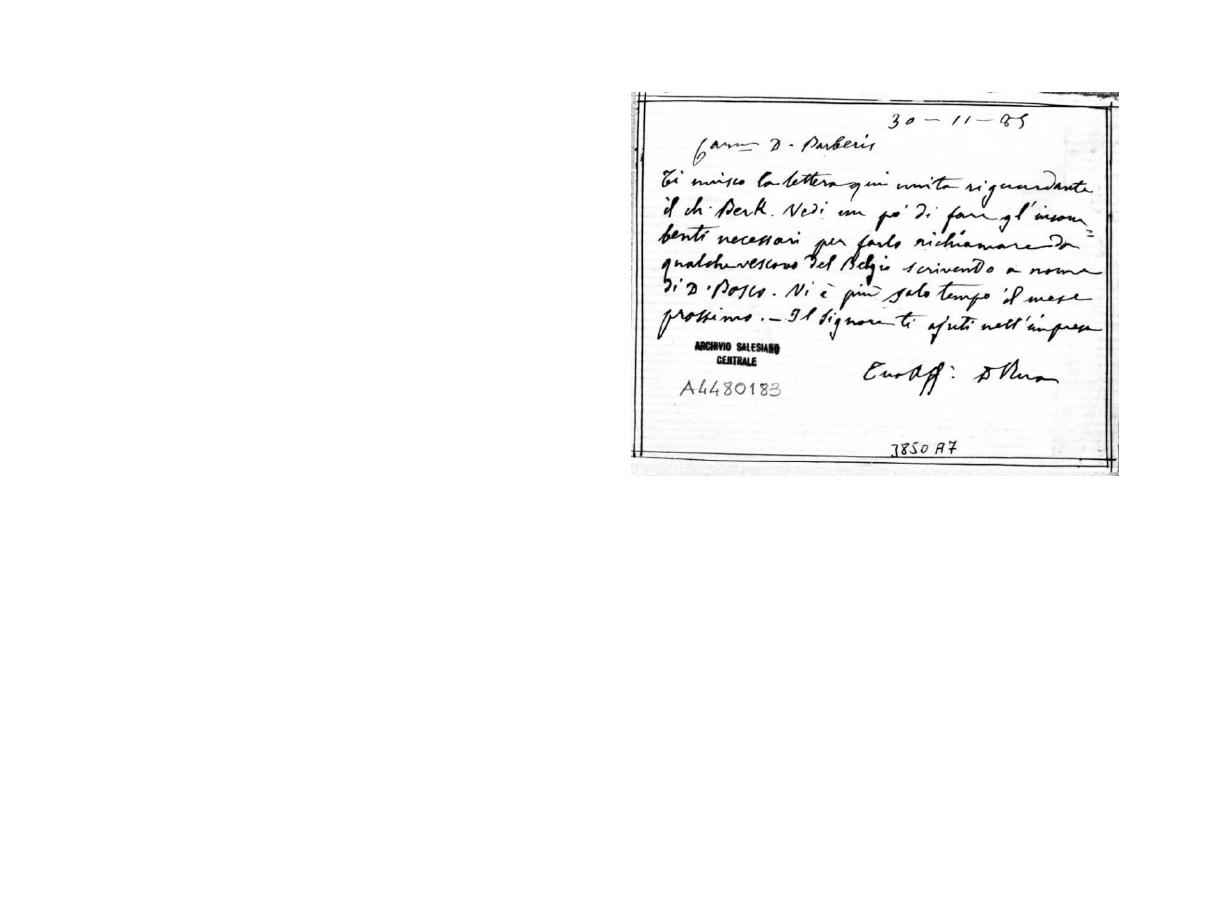 30 – 11 – 85
Carmo D. Barberis
Ti unisco la lettera qui unita riguardante
il ch. Berk. Vedi un po' di fare gl'incom=
benti necessari per farlo richiamare da
qualche vescovo del Belgio scrivendo a nome
di D. Bosco. Vi è più solo tempo il mese
prossimo. – Il Signore ti ajuti nell'impresa
Tuo Aff: D Rua
ARCHIVIO SALESIANO
CENTRALE
A4480183
3850 A7